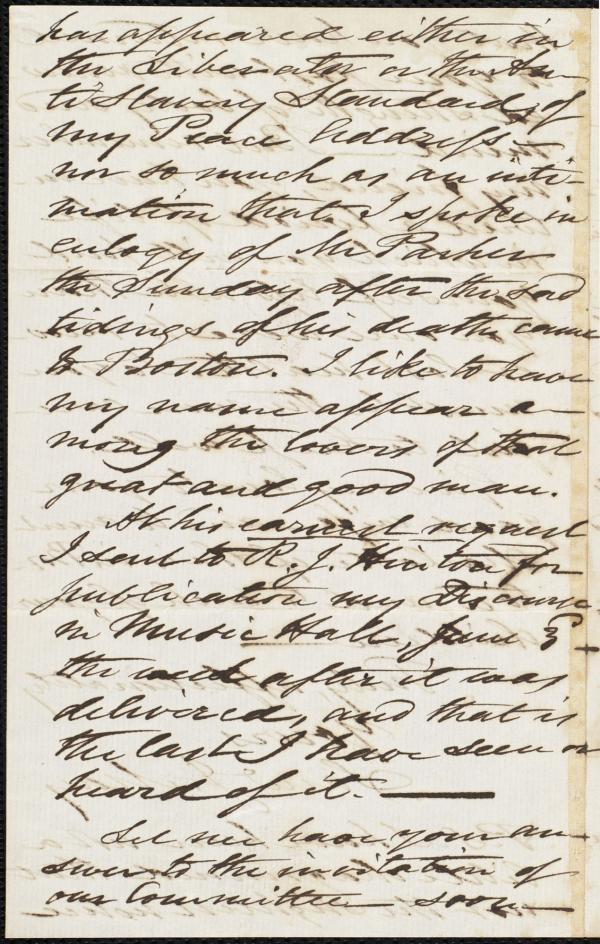 has appeared either in
the Liberator or the An-
ti Slavery Standard, of
my Peace Address—
nor so much as an inti-
mation that I spoke in
eulogy of Mr Parker
the Sunday after the sad
tidings of his death came
to Boston. I like to have
my name appear a-
mong the lovers of that
great and good man.
At his earnest request
I sent to R. J. Hinton for
publication my Discourse
in Music Hall, June 3
the week after it was
delivered, and that is
the last I have seen or
heard of it. —
Let me have your an-
swer to the invitation of
our Committee soon—